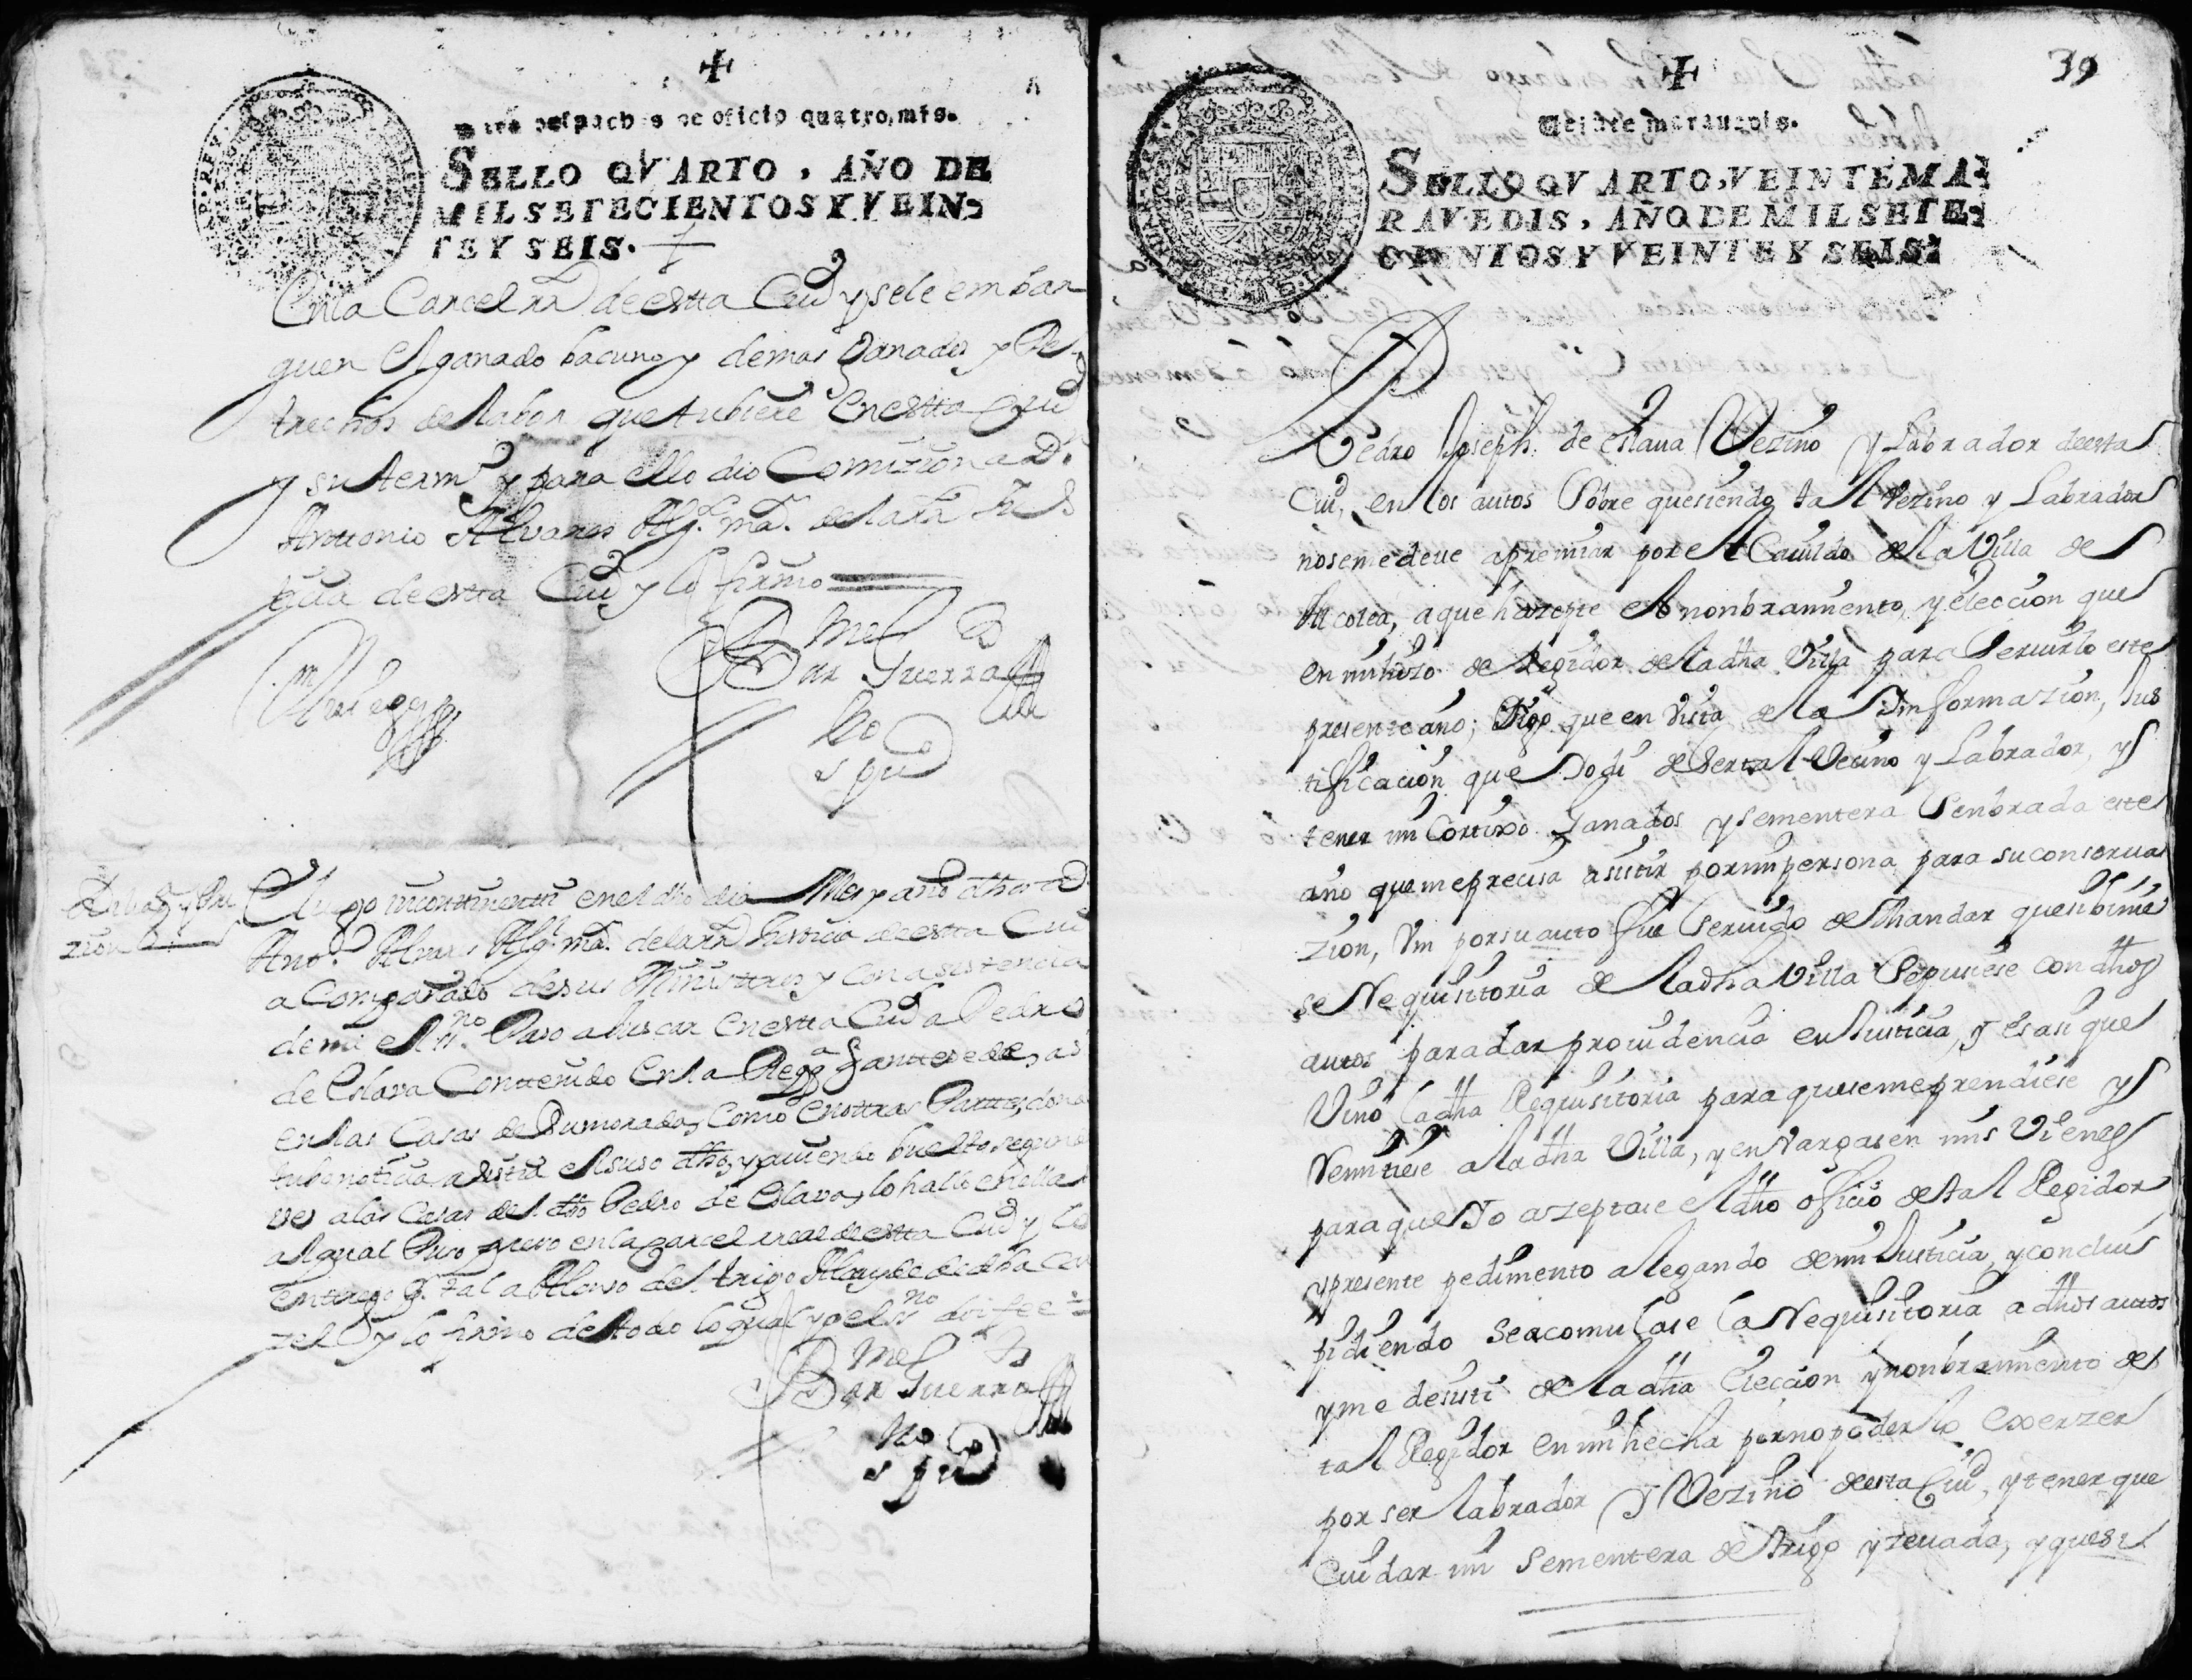 Para despachos de oficio quatro mrs.
SELLO QVARTO, AÑO DE
MIL SETECIENTOS Y VEIN-
TE Y SEIS.
En la Carcel Rl de estta Ciud y se le embar
guen el ganado bacuno y demas Ganados y Per
trechos de labor que tubiere en estta Ciud
y su termo y para ello dio Comizion a D.
Antonio Alvares Alg.l m.r de la Rl Jus
ticia de estta Ciud y lo firmo
Mel
Bar Guerra
no
s puco
Luego incontinenti en el dho dia Mes y año dho
Anto. Alvares Alg.l m.r de la Rl Justicia de estta Ciud
acompañado de sus Ministtros y con asistencia
de mi el ss.no Paso a buscar en estta Ciud a Pedro
de Eslava Conttenido en la Reqq.a antteze.de, asi
en las Casas de Su morada, como en ottras Parttes, donde
tubo noticia asistia el suso dho, y aviendo buelto, segunda
ves a las Casas del dho Pedro de Eslava, lo hallo en ellas
al qual Puso preso en la zarcel real de estta Ciud y lo
entrego p.r tal a Alonso del trigo Alcayde de dha Car
zel y lo firmo de todo lo qual yo el ss.no doi fee
Mel
Bar Guerra
no
s puco
39
Veinte marauedis.
SELLO QVARTO, VEINTE MA-
RAVEDIS, AÑO DE MIL SETE-
CIENTOS Y VEINTE Y SEIS.
Pedro Joseph de eslaua Vezino y Labrador deesta
Ciud, en los autos Sobre quesiendo tal Vezino y Labrador
nosemedeue apremiar por el Cauildo de la Villa de
Alcolea, aque hazepte el nonbramiento, y eleccion que
en mi hizo de Regidor de la dha Villa para Seruirlo este
presente año; Digo que en Vista de la Informazion, Jus
tificacion que Yo di de Ser tal Vecino y Labrador, y
tener mi Cortixo Ganados y sementera Senbrada este
año que meprecisa asistir por mi persona para su conserua
zion, Vm por su auto fue Seruido de Mandar que si biniese
se Requisitoria de la dha Villa Sepusiese con dhos
autos para dar prouidencia en Justicia, y es asi que
Vino la dha Requisitoria para que seme prendiese y
Remitiese a la dha Villa, y enVargasen mis Vienes
para que Yo azeptase el dho oficio de tal Regidor
y presente pedimento alegando de mi Justicia, y conclui
pidiendo Se acomulase la Requisitoria a dhos autos
y me desisti de la dha Eleccion y nonbramiento de
tal Regidor en mi hecha por no poderlo Exerzer
por ser labrador y Vezino deesta Ciud, y tener que
Cuidar mi Sementera de trigo y zeuada, y que si